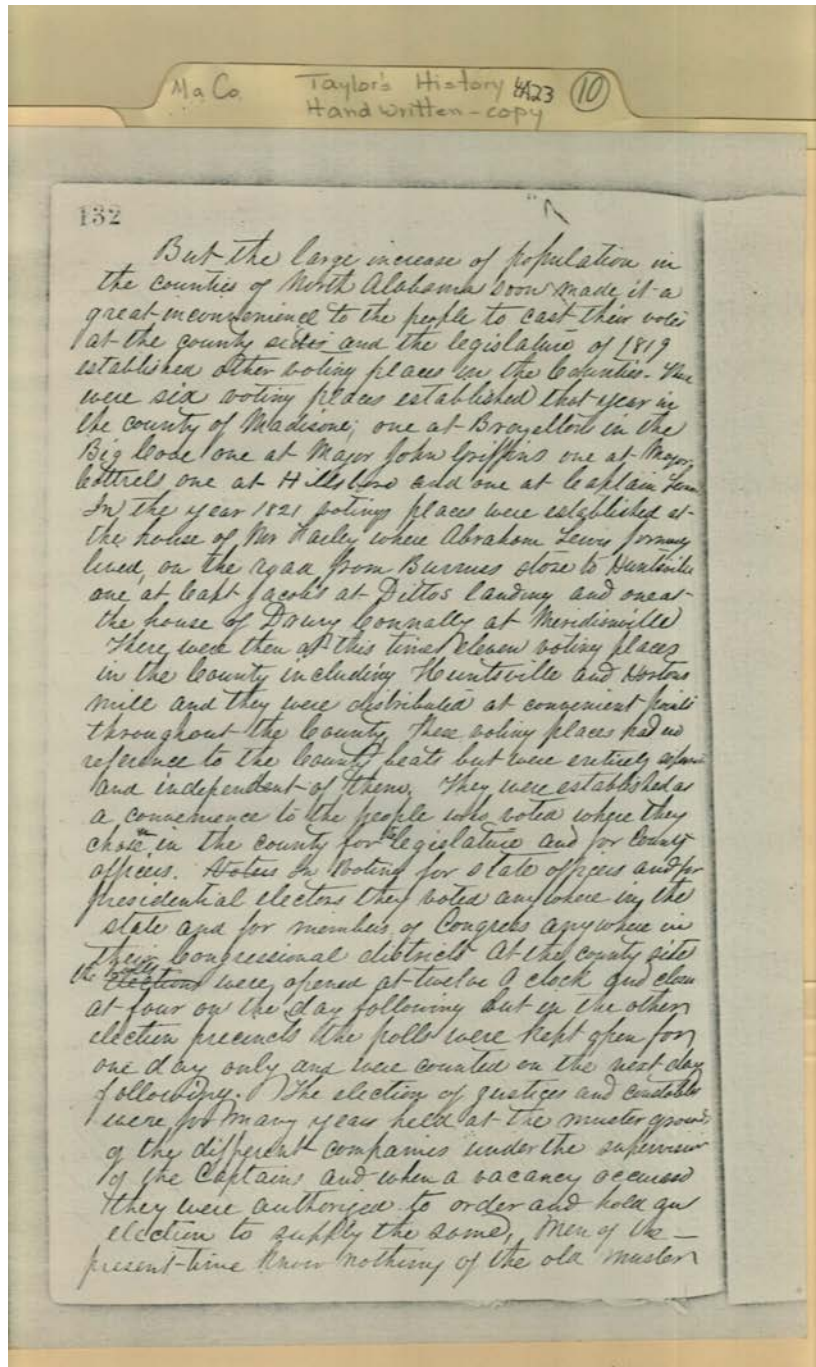 Ma Co. Taylor's History 4A23 10
Handwritten - copy
132
But the large increase of population in
the counties of North Alabama soon made it a
great inconvenience to the people to cast their votes
at the county and the legislature of 1819
established other voting places in the Counties.
were six voting places established that year in
the county of Madison; one at in the
Big Cove one at Major John Griffins one at Major
Cottrels one at Hillsboro and one at Captain
In the year 1821 voting places were established at
the house of Mr where Abraham Lewis
lived, on the road from store to Huntsville
one at Capt Jacobs at Dittos landing and one at
the house of Connally at Meridianville
There were then at this time eleven voting places
in the County including Huntsville and Hortons
mill and they were distributed at convenient points
throughout the County. These voting places had no
reference to the County beats but were entirely
and independent of them. They were established as
a convenience to the people who voted where they
chose in the county for legislature and for County
officers. Voters In voting for state officers and for
presidential electors they voted anywhere in the
state and for members of Congress anywhere in
their Congressional districts At the county site
the polls elections were opened at twelve O clock and close
at four on the day following but in the other
election precincts the polls were kept open for
one day only and were counted on the next day
following. The election of justices and constables
were for many years held at the muster grounds
of the different companies under the
of the Captains and when a vacancy occured
they were authorized to order and hold an
election to supply the same, Men of the
present time know nothing of the old muster